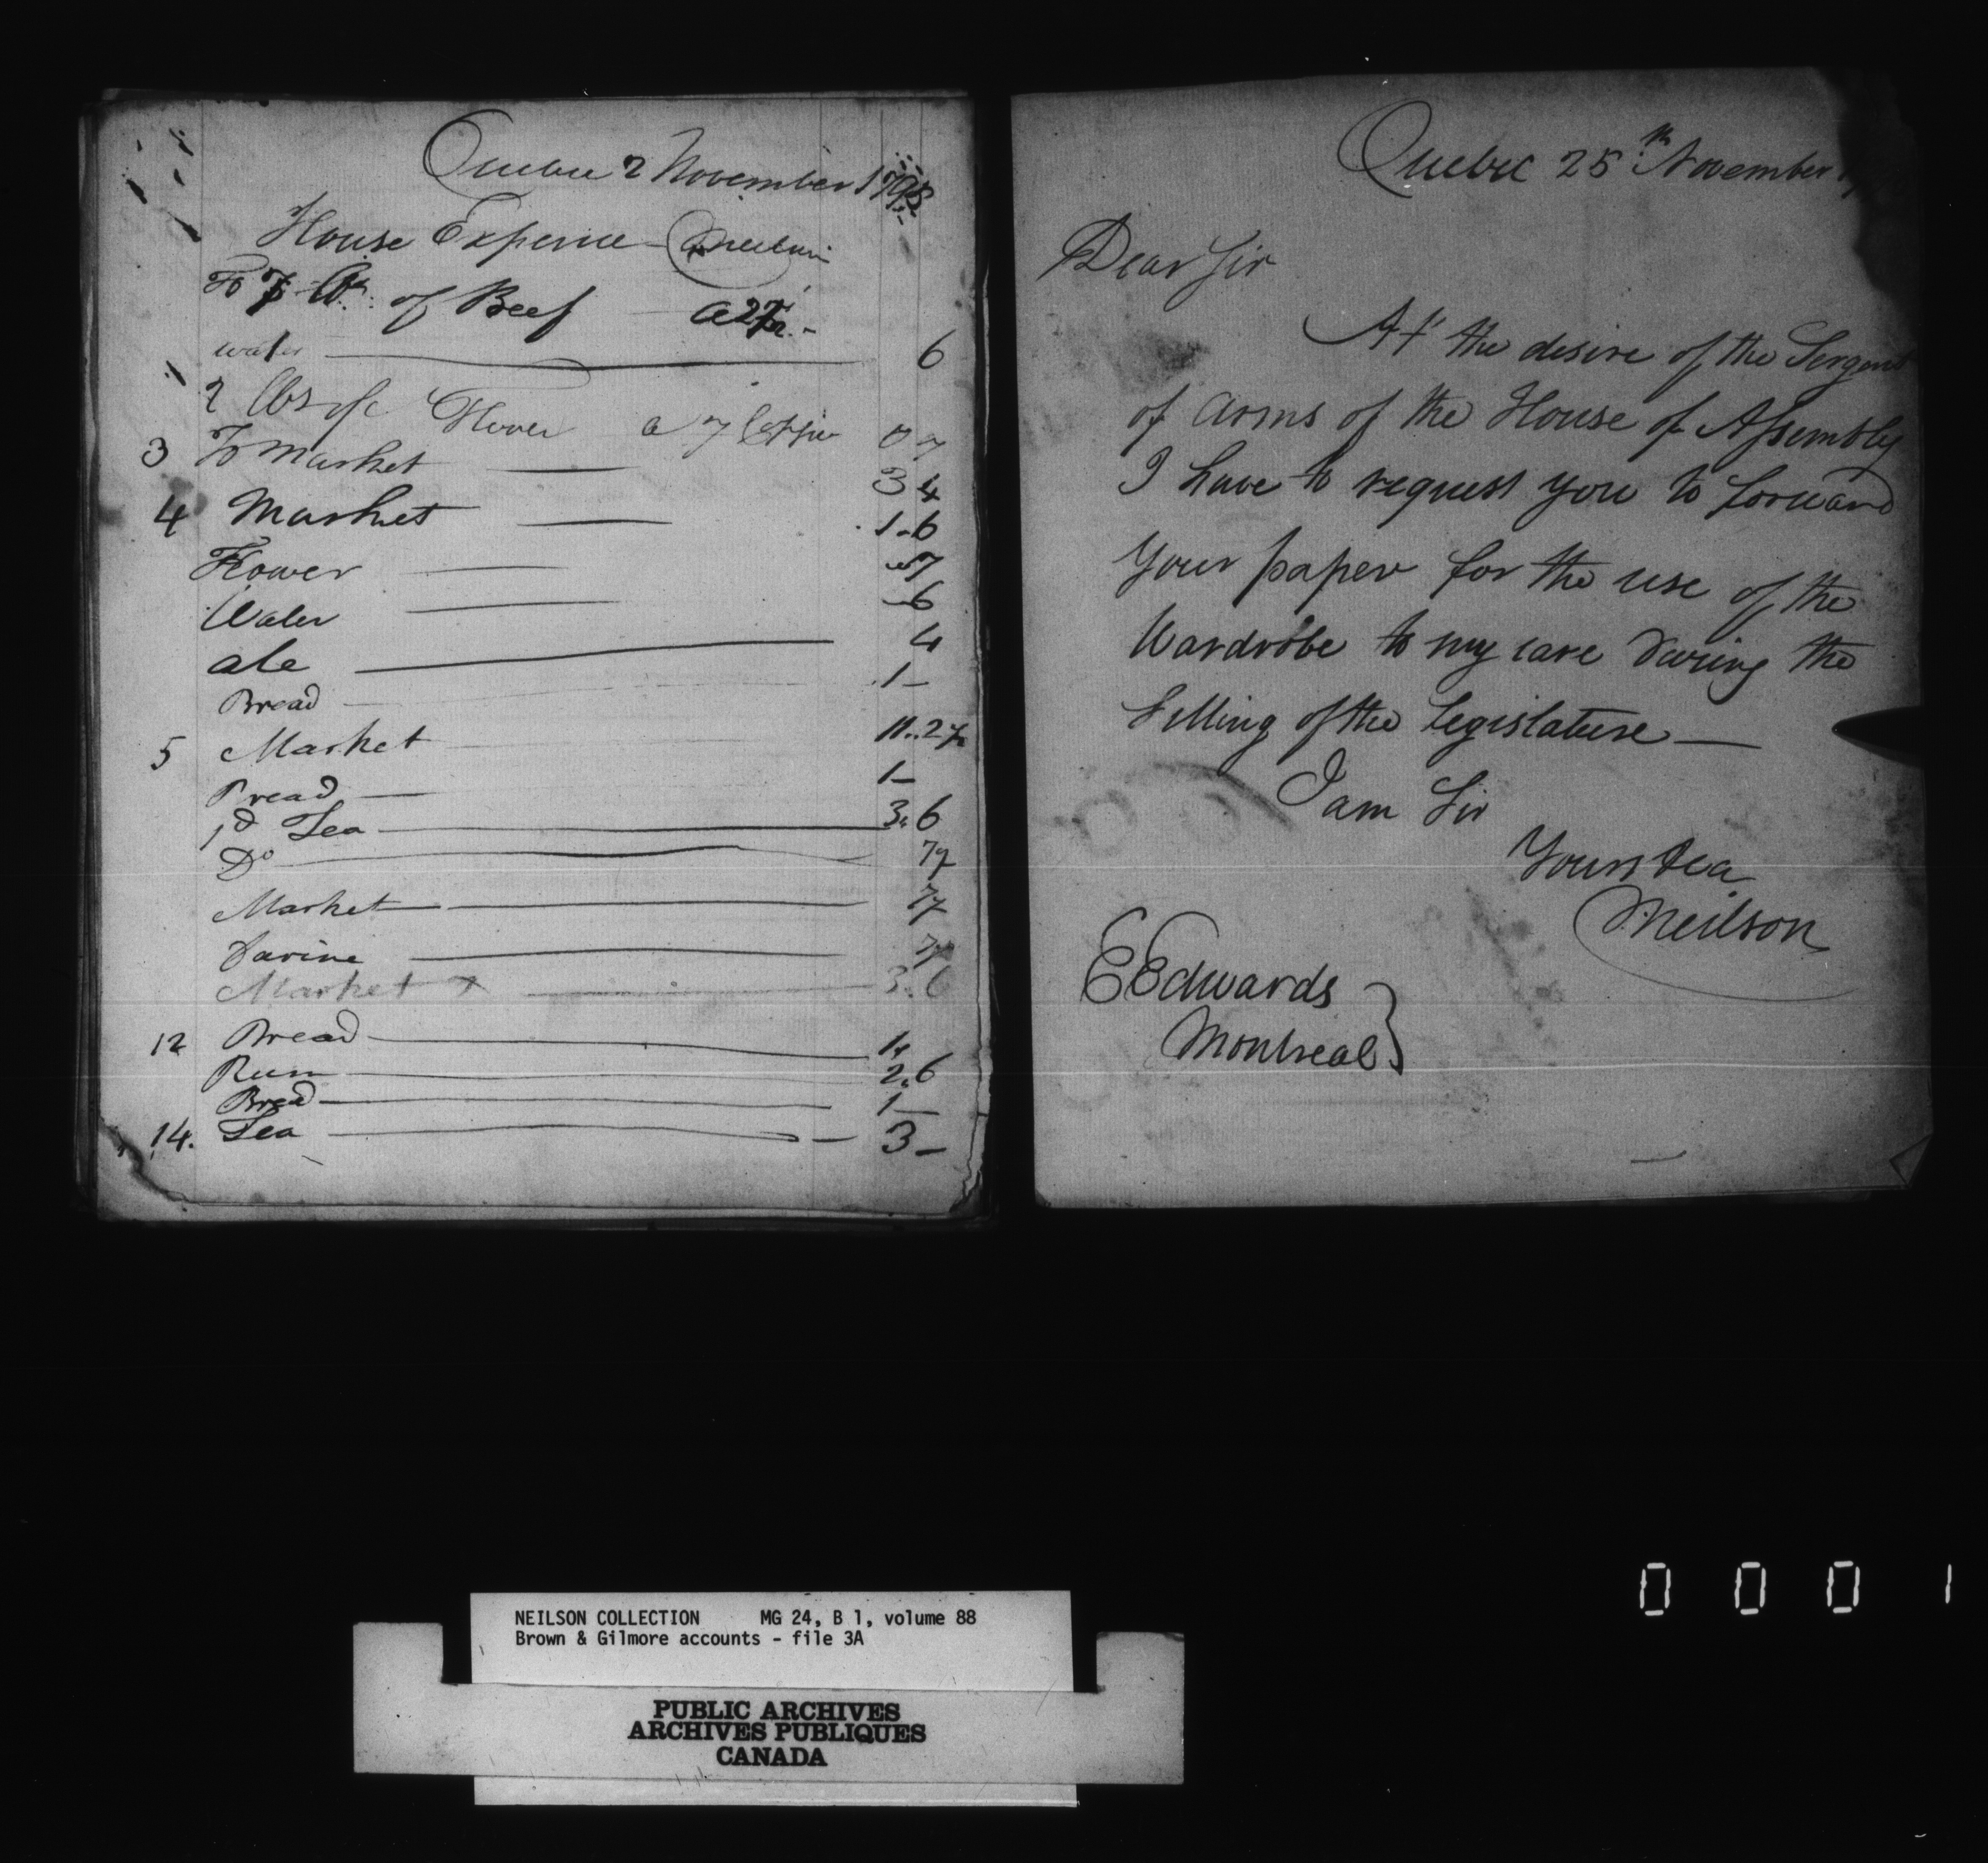 Quebec 2 November 1795
House Expence Neilson
To 7 lb: of Beef a 2½
water 6
2 lbs of Flower a 7 Coppr 0 7
3 To Market 3 4
4 Market 1-6
Flower 7
Water 6
ale 4
Bread 1-
5 Market 11..2½
Bread 1-
1d Tea 3. 6
Do 7½
Market 7½
Farine 7½
Market 3. 6
12 Bread 1
Rum 2. 6
Bread 1-
14. Tea 3-
Quebec 25th November
Dear Sir
At the desire of the Sergent
of Arms of the House of Assembly
I have to request you to forward
Your paper for the use of the
Wardrobe to my care During the
Sitting of the Legislature—
I am Sir
Yours &ca
Neilson
E Edwards
Montreal
0001
NEILSON COLLECTION MG 24, B 1, volume 88
Brown & Gilmore accounts - file 3A
PUBLIC ARCHIVES
ARCHIVES PUBLIQUES
CANADA